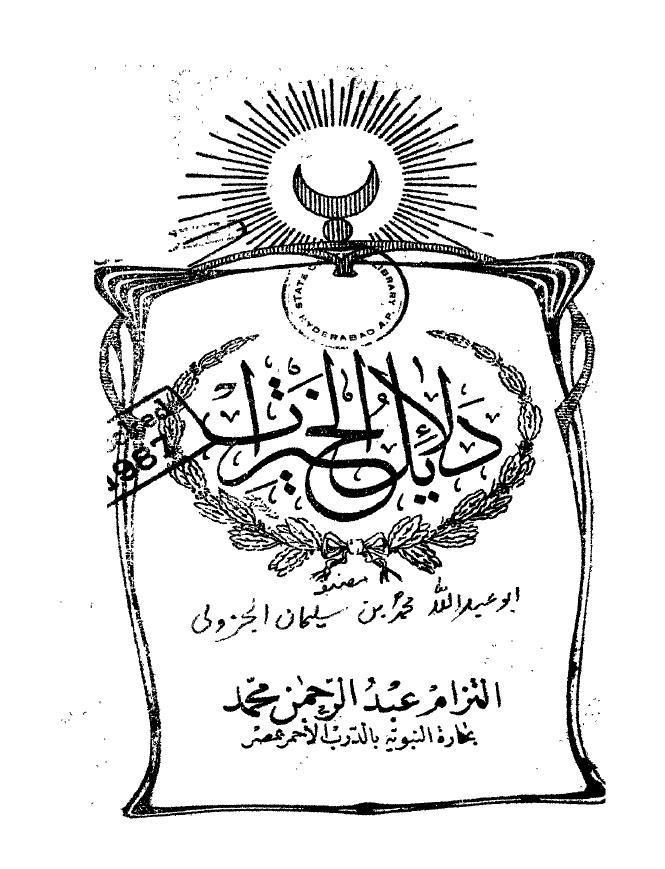 STATE LIBRARY HYDERABAD A.P.
دلائل الخيرات
1987
مصنفه
ابو عبد الله محمد بن سليمان الجزولى
التزام عبد الرحمن محمد
بحارة النبوية بالدرب الأحمر بمصر